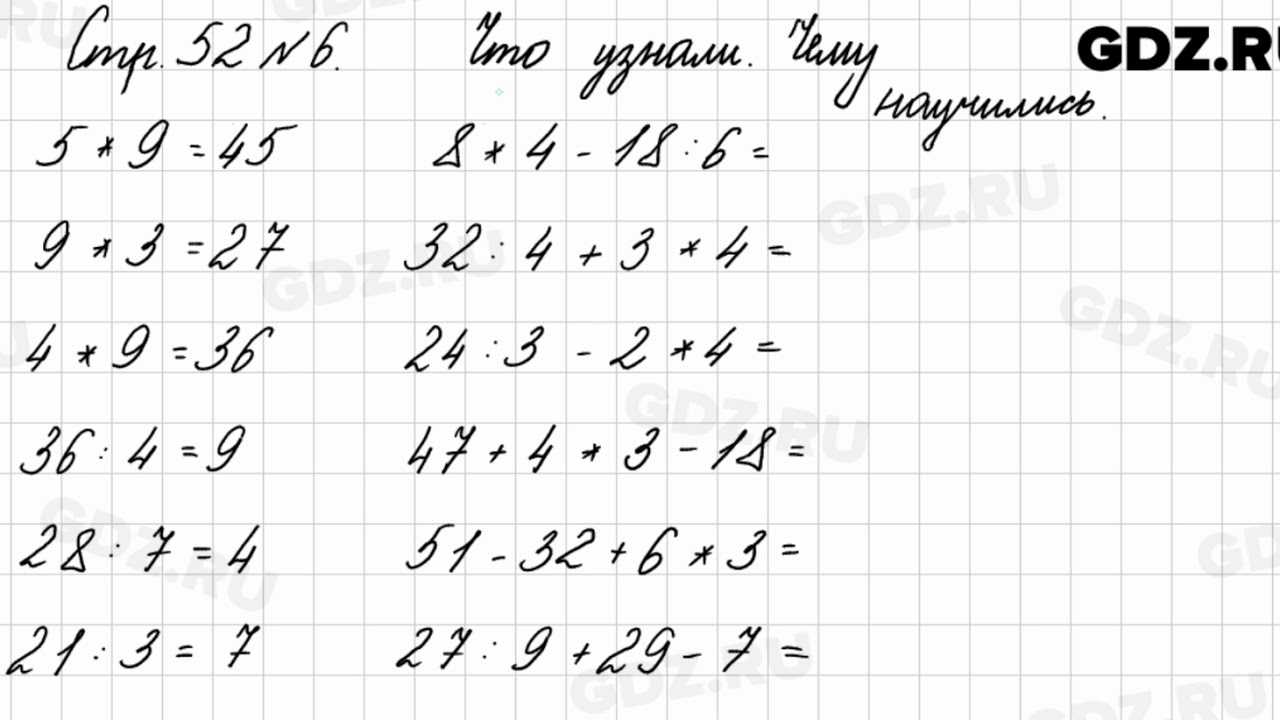 Стр. 52 №6. Что узнали. Чему GDZ.RU
научились.
5 * 9 = 45 8 * 4 - 18 : 6 =
9 * 3 = 27 32 : 4 + 3 * 4 =
4 * 9 = 36 24 : 3 - 2 * 4 =
36 : 4 = 9 47 + 4 * 3 - 18 =
28 : 7 = 4 51 - 32 + 6 * 3 =
21 : 3 = 7 27 : 9 + 29 - 7 =